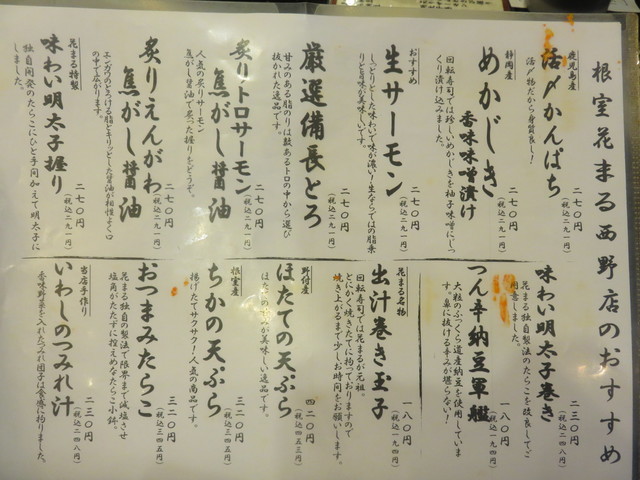 根室花まる西野店のおすすめ
鹿児島産
活〆かんぱち
活〆物だから身質良し!
二七〇円
(税込二九一円)
静岡産
めかじき
香味味噌漬け
回転寿司では珍しいめかじきを柚子味噌にじっ
くり漬け込みました。
二七〇円
(税込二九一円)
おすすめ
生サーモン
しっとりとした味わいで味が濃い!生ならではの脂乗
りと旨味が美味しいです。
二七〇円
(税込二九一円)
厳選備長とろ
甘みのある脂のりは数あるトロの中から選び
抜かれた逸品です。
二七〇円
(税込二九一円)
炙りトロサーモン
焦がし醤油
人気の炙りサーモン
焦がし醤油で炙った握りをどうぞ。
二七〇円
(税込二九一円)
炙りえんがわ
焦がし醤油
エンガワのとろける脂とキリッとした醤油が相性よく口
の中で広がります。
二七〇円
(税込二九一円)
花まる特製
味わい明太子握り
独自開発のたらこにひと手間加えて明太子に
しました。
二七〇円
(税込二九一円)
味わい明太子巻き
花まる独自製法のたらこを改良してご
用意しました。
二三〇円
(税込二四八円)
つん辛納豆軍艦
大粒のふっくら道産納豆を使用していま
す。鼻に抜ける辛みが堪らない!
一八〇円
(税込一九四円)
花まる名物
出汁巻き玉子
回転寿司では花まるが元祖。
とにかく焼きたてに拘っておりますので
焼き上がるまで少しお時間をお願いします。
一八〇円
(税込一九四円)
野付産
ほたての天ぷら
ほたての甘みが美味しい逸品です。
四二〇円
(税込四五三円)
根室産
ちかの天ぷら
揚げたてサクサク!人気の商品です。
三二〇円
(税込三四五円)
おつまみたらこ
花まる独自の製法で限界まで減塩させ
塩角がたたずに控えめなたらこ小鉢。
三二〇円
(税込三四五円)
当店手作り
いわしのつみれ汁
香味野菜を入れたつみれ団子は食感に拘りました。
二三〇円
(税込二四八円)